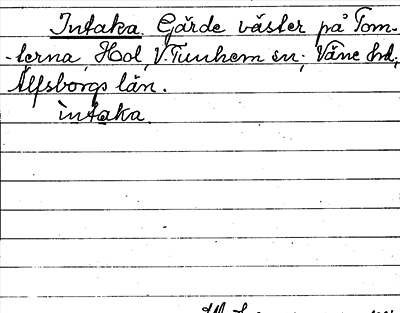 Intaka. Gärde väster på Tom-
-terna, Hol, V. Tunhem sn; Väne hd;
Älfsborgs län.
ìntaka.